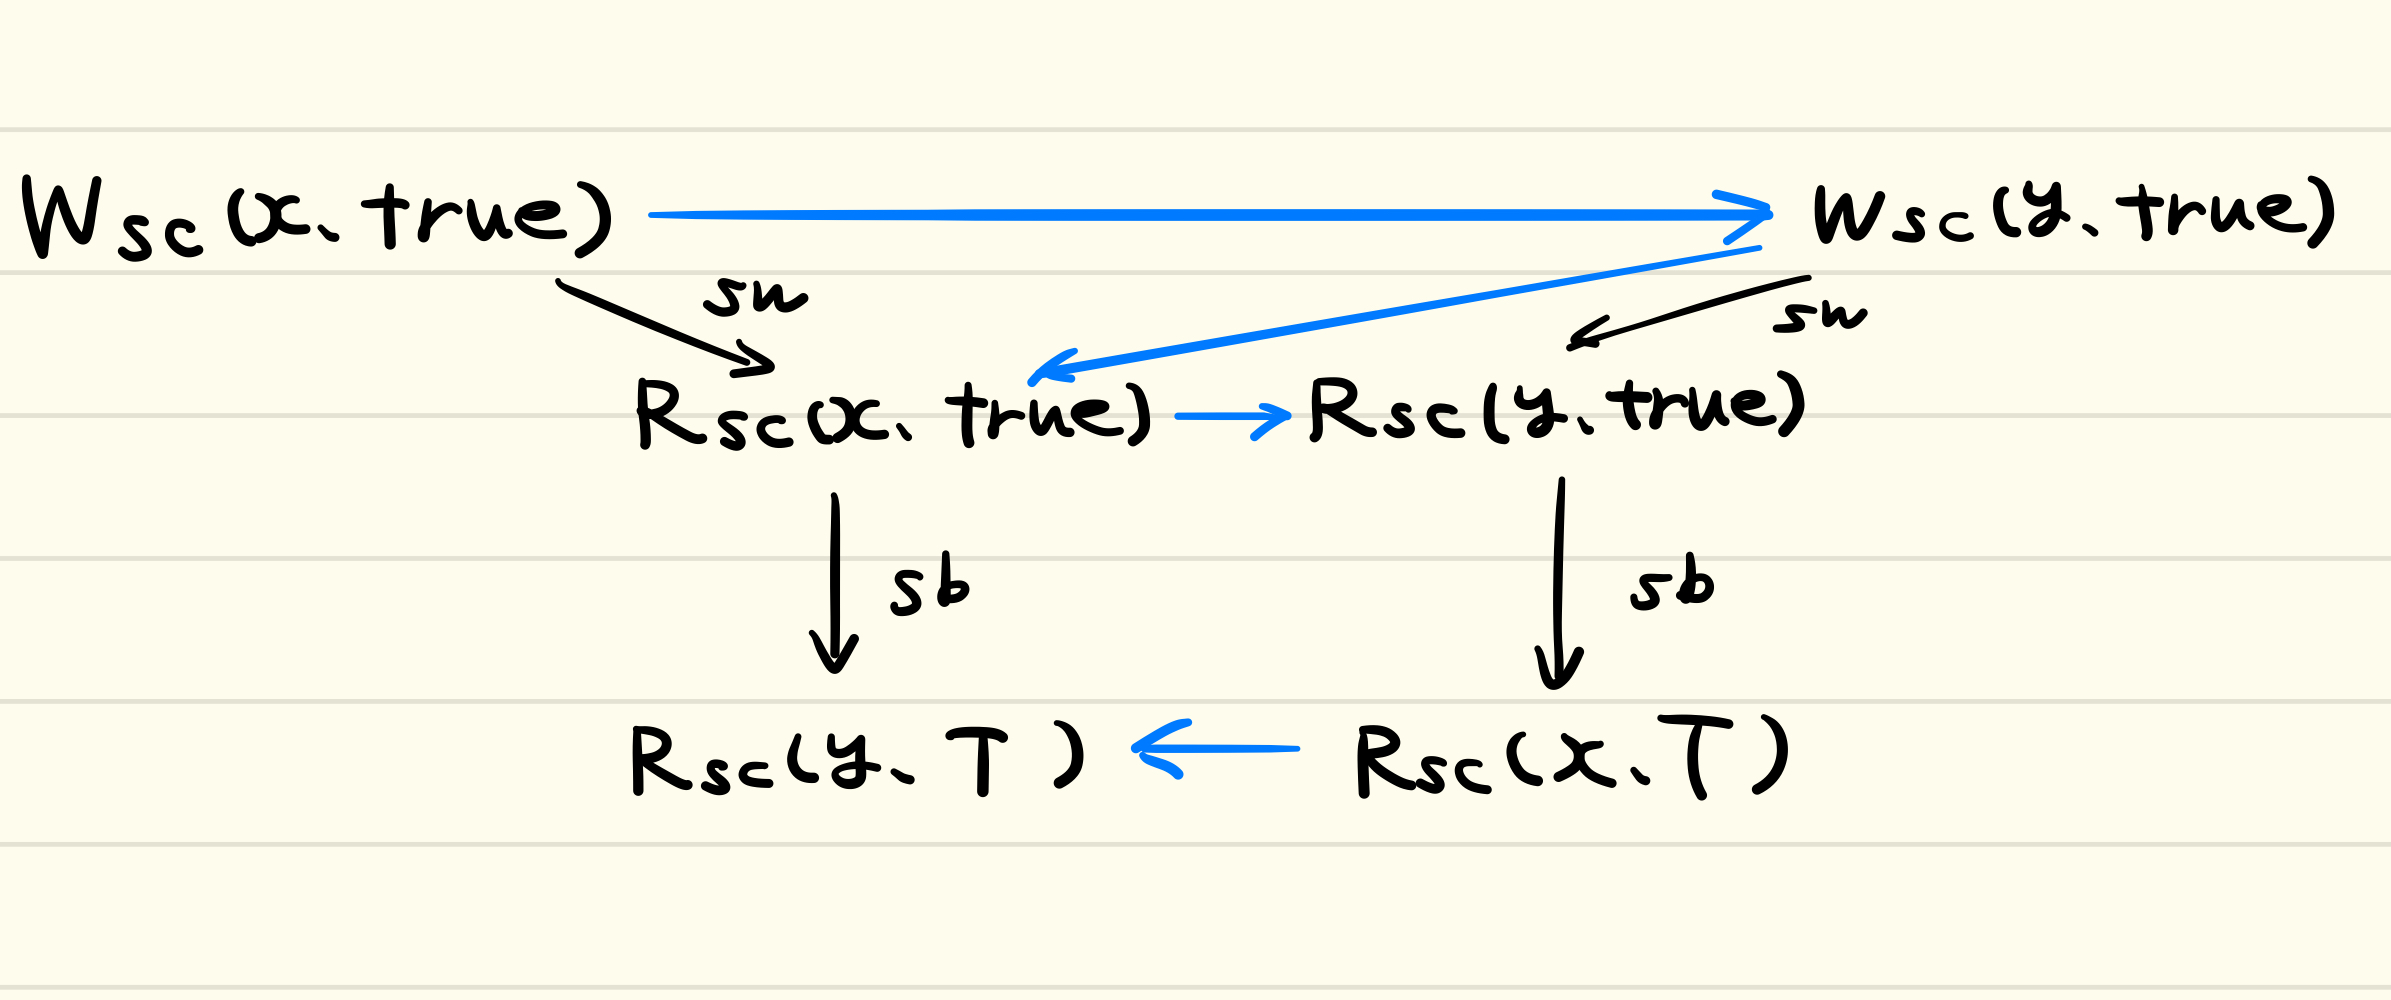 Wsc(x、true) Wsc(y、true)
sw sw
Rsc(x、true) Rsc(y、true)
sb sb
Rsc(y、T) Rsc(x、T)